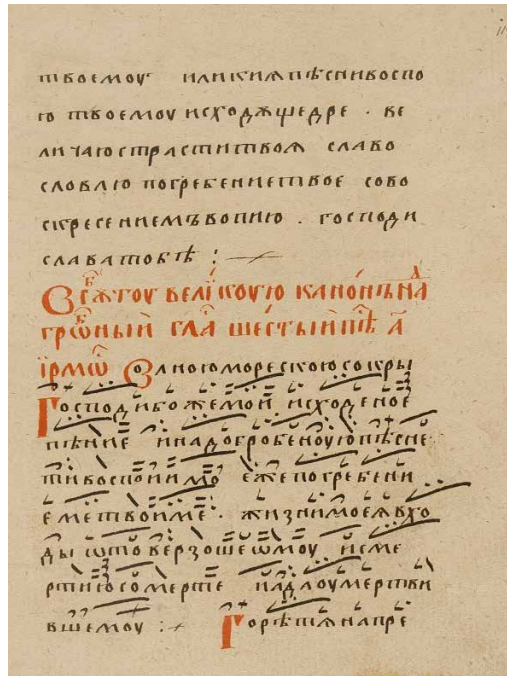 твоемоу или кия пѣсни воспо
ю твоемоу исходѫ щедре . ве
личаю страсти твоѧ славо
словлю погребение твое сово
скресениемъ вопию . господи
слава тобѣ :
В сѧ҇тоую великоую канонъ на
гро҇ѡный гла҇ шестый пѣ҇ а҃
їрмѡ҇ Волною морескою сокры
Господи боже мой исходеное
пѣние и надогробеноую пѣсне
ти воспою имо҇ еже погребени
еме твоиме . жизни моея вхо
ды ѡтоверзошеѡмоу и сме
ртию сомерте и ада оумертви
вшемоу : Горѣ тя на пре